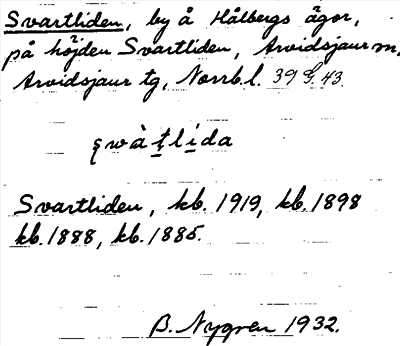 Svartliden, by å Hålbergs ägor,
på höjden Svartliden, Arvidsjaur m,
Arvidsjaur tg, Norrb.l. 39 G. 43
swàt̠lída
Svartliden, kb. 1919, kb. 1898
kb. 1888, kb. 1885.
B. Nygren 1932.